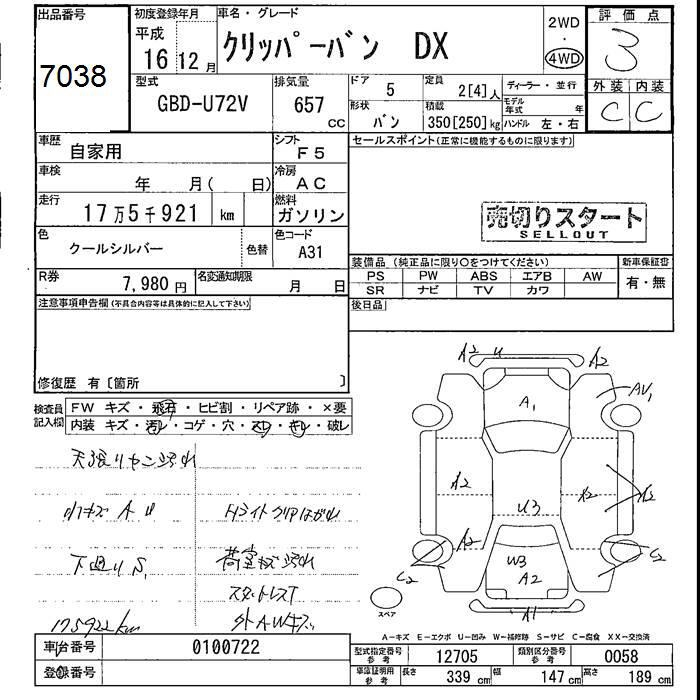 出品番号
7038
初度登録年月
平成
16 年 12 月
車名・グレード
クリッパーバン DX
2WD
・
4WD
評価点
3
外装 内装
C C
型式
GBD-U72V
排気量
657 CC
ドア 5
定員 2[4]人
ディーラー・並行
形状 バン
積載 350[250]kg
モデル年式 年
ハンドル 左・右
車歴
自家用
シフト
F5
セールスポイント(正常に機能するものに限ります)
車検
年 月( 日)
冷房
AC
走行
17万5千921 km
燃料
ガソリン
売切りスタート
SELLOUT
色
クールシルバー
色替
色コード
A31
装備品(純正品に限り○をつけてください)
新車保証書
PS PW ABS エアB AW
SR ナビ TV カワ
有・無
R券
7,980 円
名変通知期限
月 日
後日品
注意事項申告欄(不具合内容等は具体的に記入して下さい)
修復歴 有〔箇所 〕
検査員記入欄
FW キズ・飛石・ヒビ割・リペア跡・×要
内装 キズ・汚レ・コゲ・穴・スレ・キレ・破レ
小キズ A U
Hライトクリアはがれ
下廻りS1
荷室板汚れ
スタートレスT
175922km
外AWキズ
A2 U A2
AV1
A1
A2 A2 A2
U3
A2
C2 C2
W3
A2
A1
スペア
A−キズ E−エクボ U−凹み W−補修跡 S−サビ C−腐食 XX−交換済
車台番号
0100722
登録番号
型式指定番号 参考
12705
類別区分番号 参考
0058
車庫証明用 参考
長さ 339 cm
幅 147 cm
高さ 189 cm